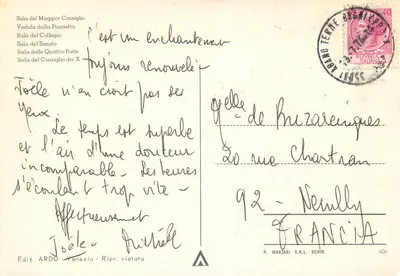 Sala del Maggior Consiglio
Veduta dalla Piazzetta
Sala del Collegio
Sala del Senato
Sala delle Quattro Porte
Sala del Consiglio dei X
c'est un enchantement
toujours renouvelé -
Joëlle n'en croit pas ses
yeux.
Le temps est superbe
et l'air d'une douceur
incomparable. Les heures
s'écoulent trop vite -
Affectueusement
Joëlle
Edis. ARDO - Venezia - Ripr. vietata
ABANO TERME
Mlle de Buzareingues
20 rue Chartran
92 - Neuilly
FRANCIA
K. MANZARI S.R.L. SCHIO